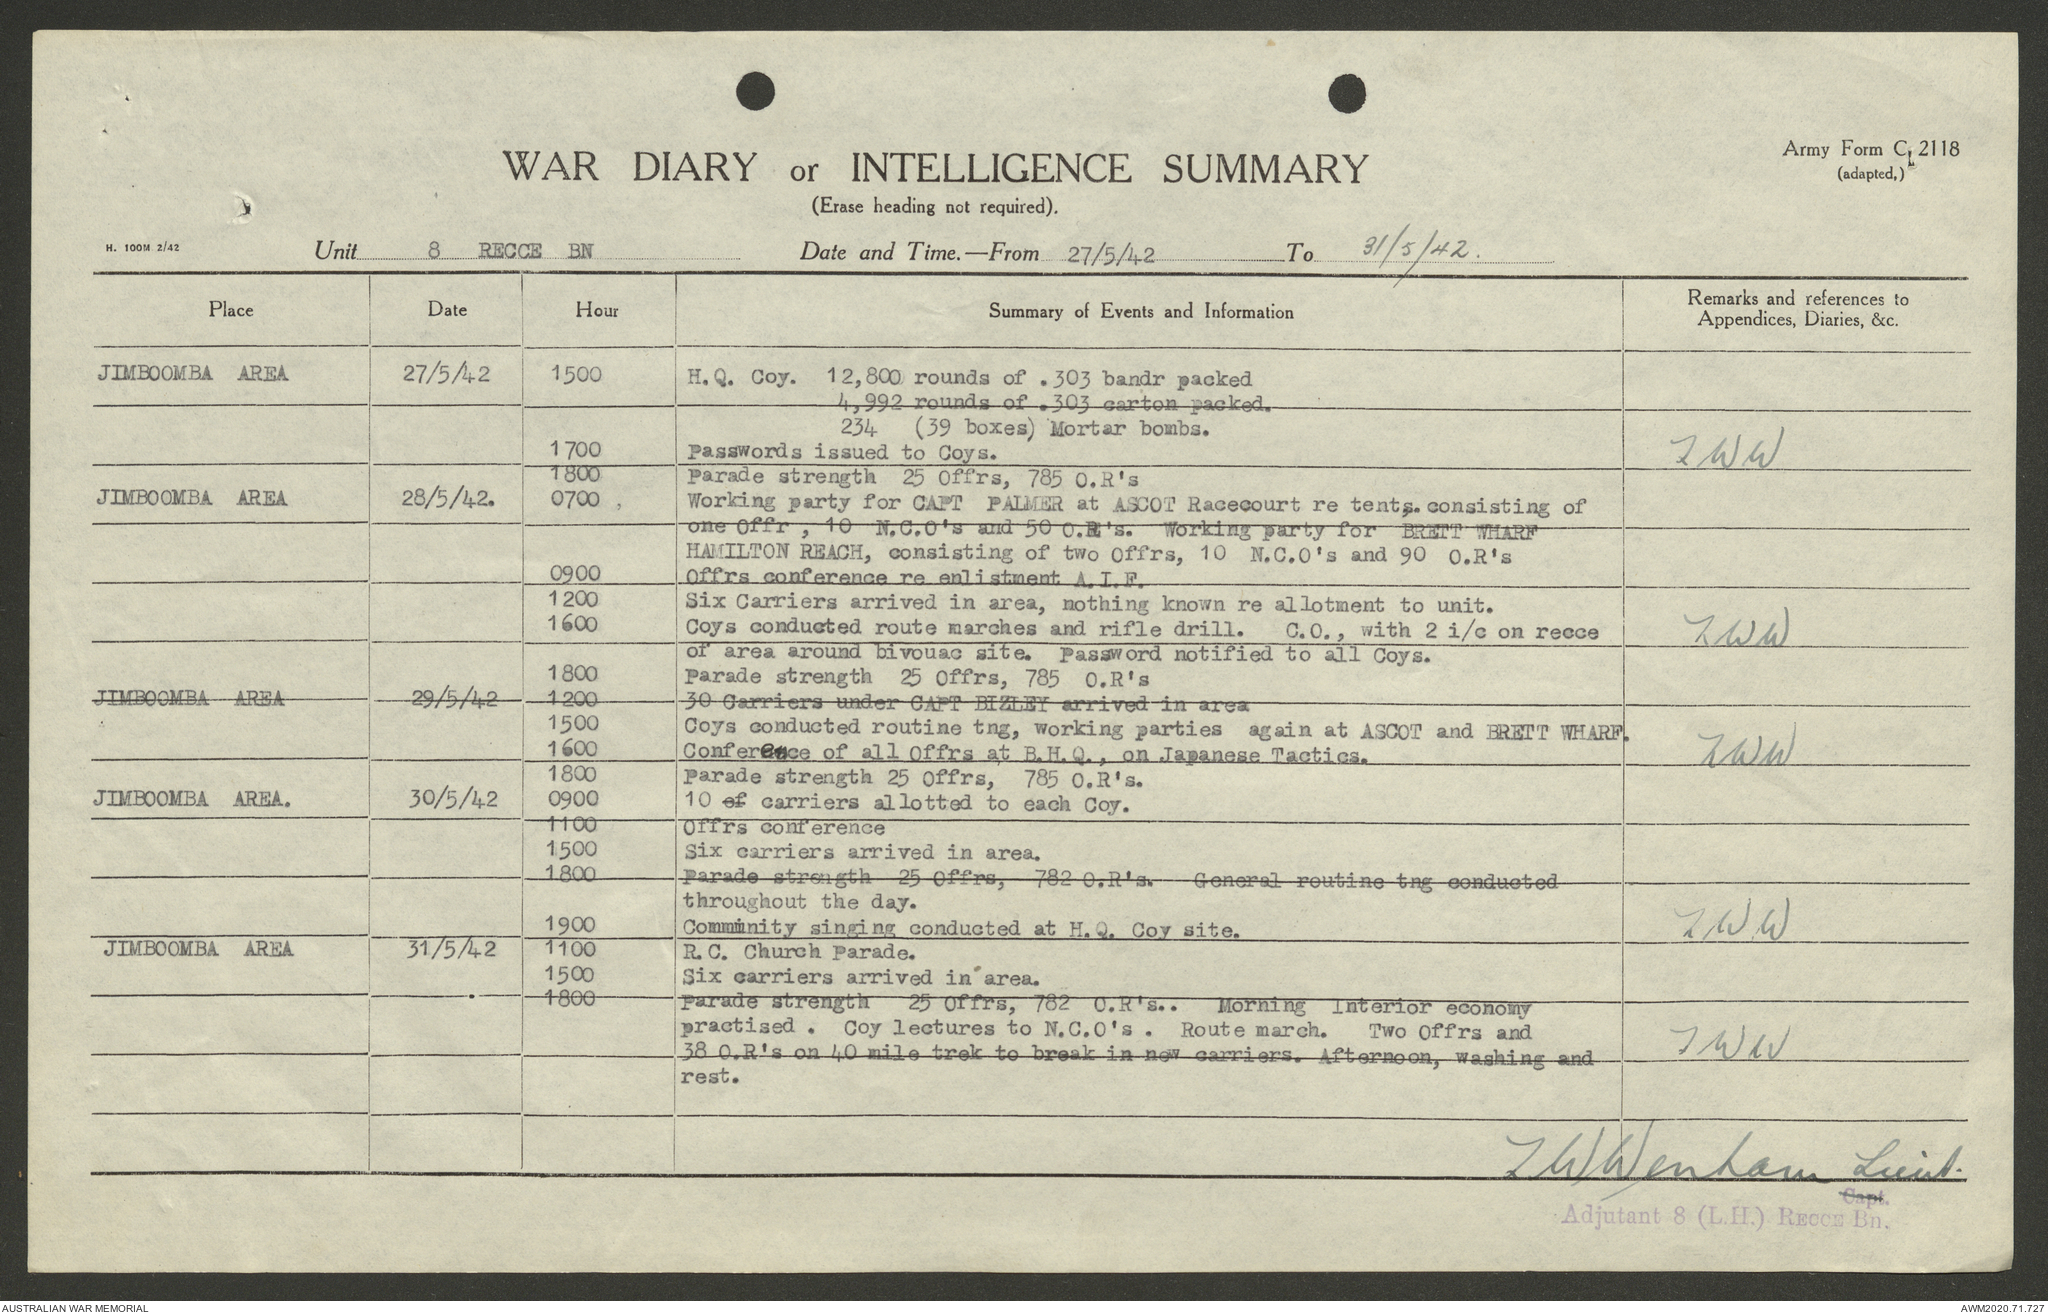 WAR DIARY or INTELLIGENCE SUMMARY
(Erase heading not required).
Army Form C. 2118
(adapted,)
H. 100M 2/42
Unit 8 RECCE BN Date and Time.—From 27/5/42 To 31/5/42.
Place Date Hour Summary of Events and Information Remarks and references to Appendices, Diaries, &c.
JIMBOOMBA AREA 27/5/42 1500 H.Q. Coy. 12,800 rounds of .303 bandr packed
4,992 rounds of .303 carton packed.
234 (39 boxes) Mortar bombs.
1700 Passwords issued to Coys. ZWW
1800 Parade strength 25 Offrs, 785 O.R's
JIMBOOMBA AREA 28/5/42. 0700 Working party for CAPT PALMER at ASCOT Racecourt re tents. consisting of
one Offr , 10 N.C.O's and 50 O.R's. Working party for BRETT WHARF
HAMILTON REACH, consisting of two Offrs, 10 N.C.O's and 90 O.R's
0900 Offrs conference re enlistment A.I.F.
1200 Six Carriers arrived in area, nothing known re allotment to unit.
1600 Coys conducted route marches and rifle drill. C.O., with 2 i/c on recce ZWW
of area around bivouac site. Password notified to all Coys.
1800 Parade strength 25 Offrs, 785 O.R's
JIMBOOMBA AREA 29/5/42 1200 30 Carriers under CAPT BIZLEY arrived in area
1500 Coys conducted routine tng, working parties again at ASCOT and BRETT WHARF.
1600 Conference of all Offrs at B.H.Q., on Japanese Tactics. ZWW
1800 Parade strength 25 Offrs, 785 O.R's.
JIMBOOMBA AREA. 30/5/42 0900 10 of carriers allotted to each Coy.
1100 Offrs conference
1500 Six carriers arrived in area.
1800 Parade strength 25 Offrs, 782 O.R's. General routine tng conducted
throughout the day.
1900 Community singing conducted at H.Q. Coy site. ZWW
JIMBOOMBA AREA 31/5/42 1100 R.C. Church Parade.
1500 Six carriers arrived in area.
1800 Parade strength 25 Offrs, 782 O.R's.. Morning Interior economy
practised . Coy lectures to N.C.O's . Route march. Two Offrs and ZWW
38 O.R's on 40 mile trek to break in new carriers. Afternoon, washing and
rest.
ZWWenham Lieut.
Capt.
Adjutant 8 (L.H.) RECCE Bn.
AUSTRALIAN WAR MEMORIAL AWM2020.71.727